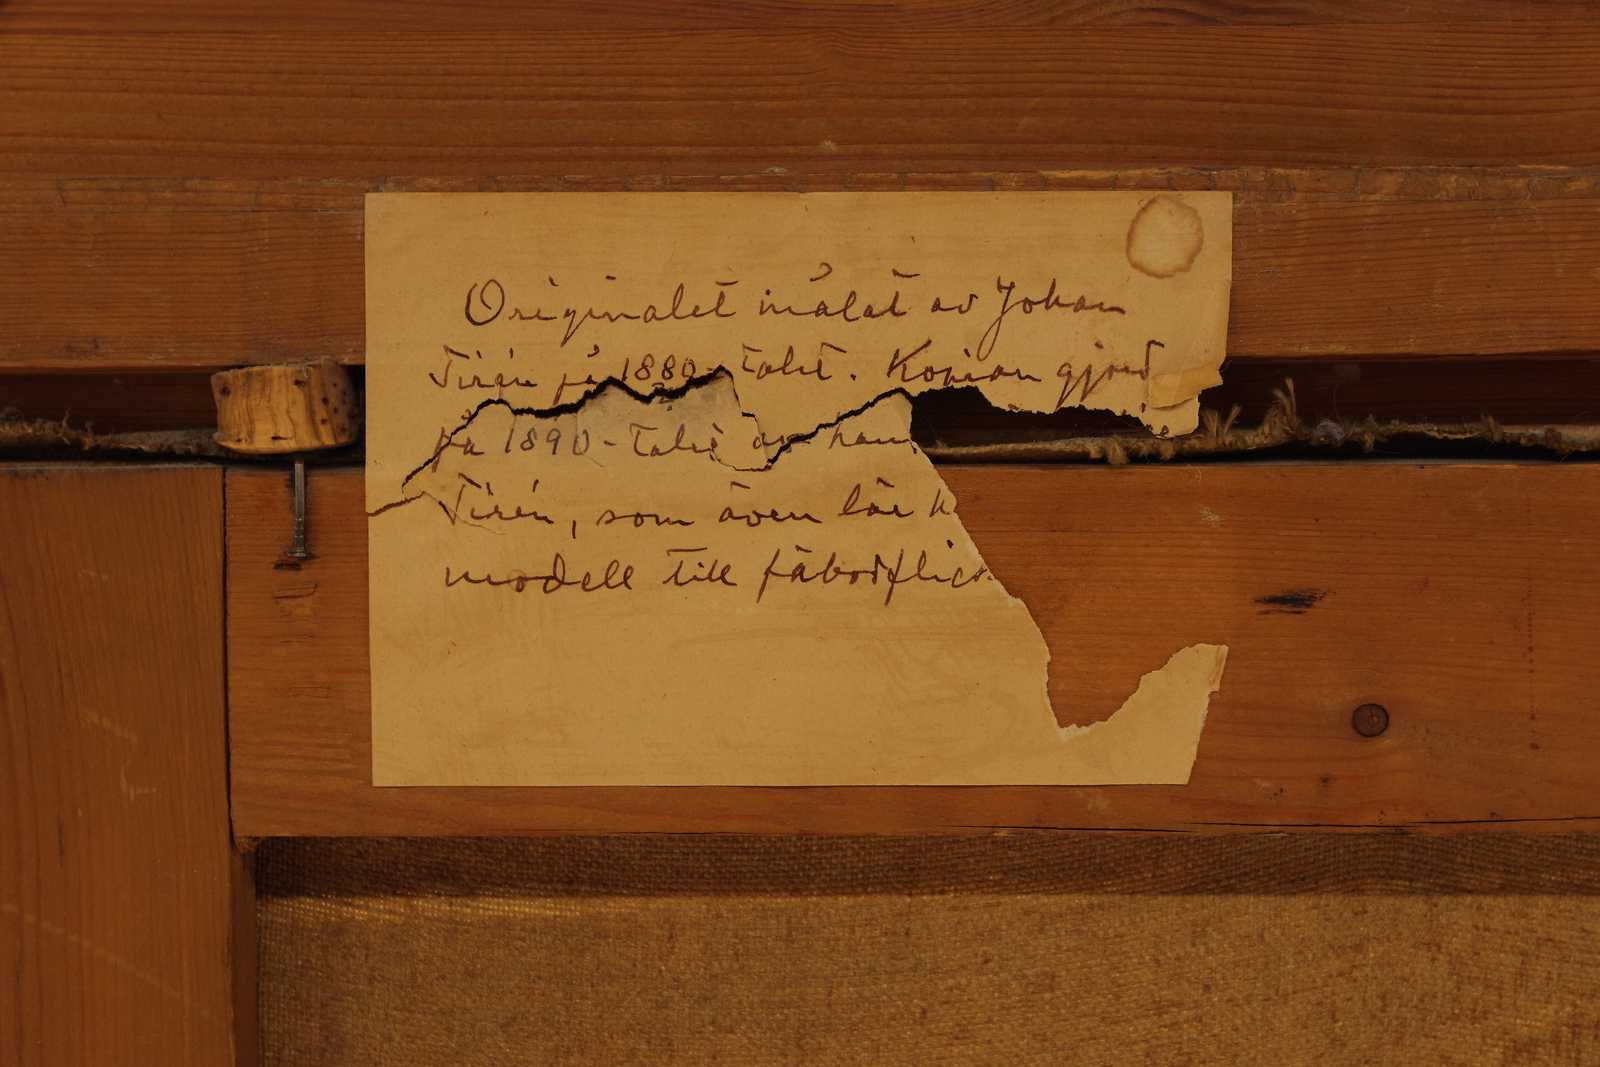 Originalet målat av Johan
Tirén på 1880-talet. Kopian gjord
på 1890-talet av hans
Tirén, som även lär h
modell till fäbodflic